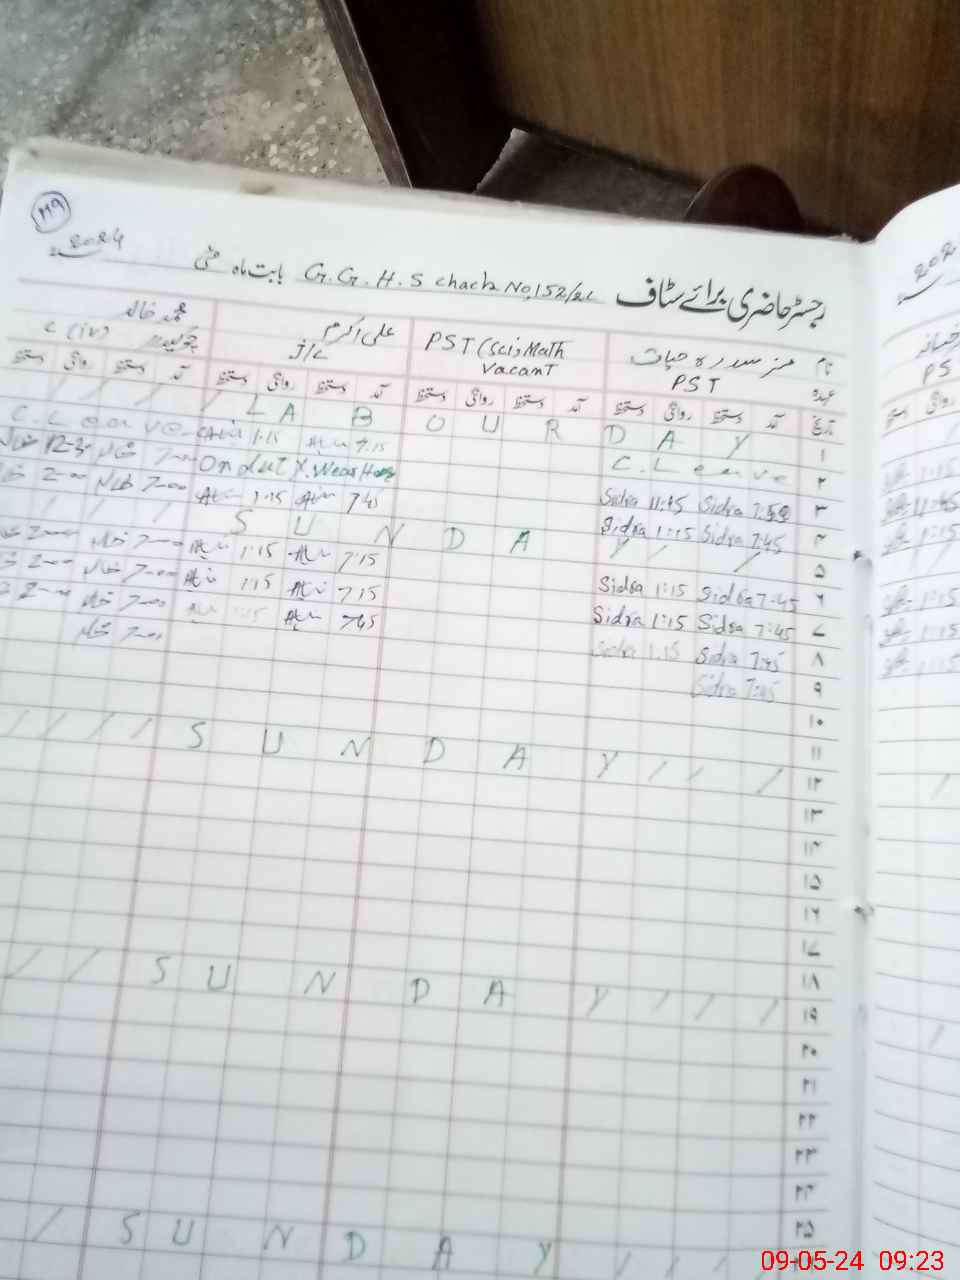 ۱۴۹
2024
رجسٹر حاضری برائے سٹاف G.G.H.S chack No,152/2L بابت ماہ مئی
نام مسز سدرہ حیات PST (Sci) Math علی اکرم محمد خالد
عہدہ PST Vacant J/c چوکیدار C (iv)
تاریخ آمد دستخط روانگی دستخط آمد دستخط روانگی دستخط آمد دستخط روانگی دستخط آمد دستخط روانگی دستخط
۱ L A B O U R D A Y
۲ C. Leave Ali 7.15 Ali 1:15 C. Leave
۳ Sidra 11:45 On dut
۴ Sidra 7:45 Sidra 1:15 Ali 7.45 Ali 1:15 خالد 7-00 2-00
۵ S U N D A Y
۶ Sidra 7:45 Sidra 1:15 Ali 7.15 Ali 1:15 خالد 7-00 2-00
۷ Sidra 7:45 Sidra 1:15 Ali 7.15 Ali 1:15 خالد 7-00 2-00
۸ Sidra 7:45 Sidra 1.15 Ali 7.45 خالد 7-00 2-00
۹ Sidra 7:45 خالد 7-00
۱۰
۱۱
۱۲ S U N D A Y
۱۳
۱۴
۱۵
۱۶
۱۷
۱۸
۱۹ S U N D A Y
۲۰
۲۱
۲۲
۲۳
۲۴
۲۵
S U N D A Y
PS
1:15
11:45
1:15
1:15
1:15
1:15
09-05-24 09:23